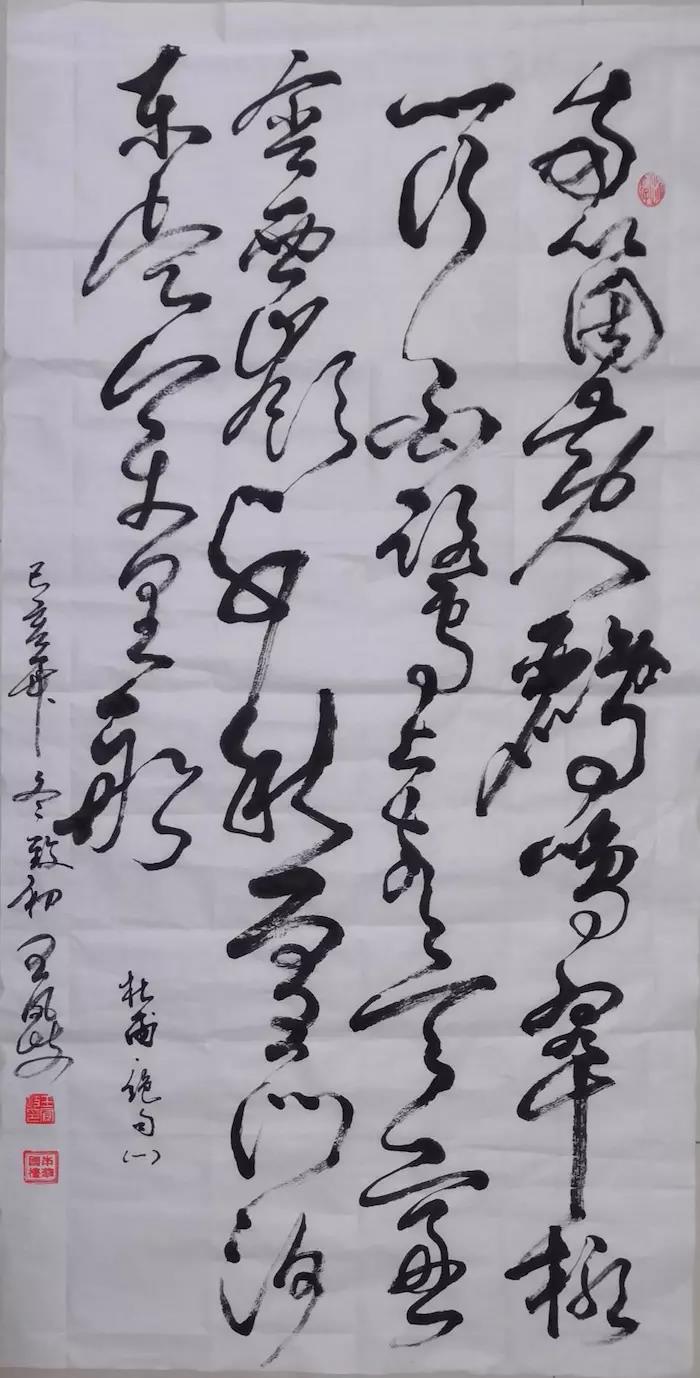 两箇黄鸝鸣翠柳
一行白鹭上青天窗
含西嶺千秋雪门泊
东吴万里船
杜甫·绝句(一)
己亥年冬致初王凤岐